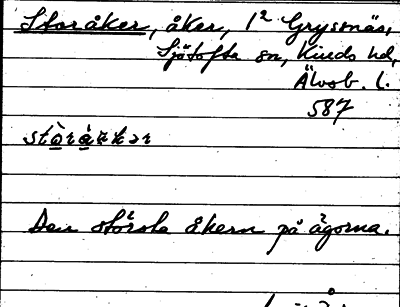 Storåker, åker, 1² Grysnäs,
Sjötofta sn, Kinds hd,
Älvsb. l.
587
Den största åkern på ägorna.